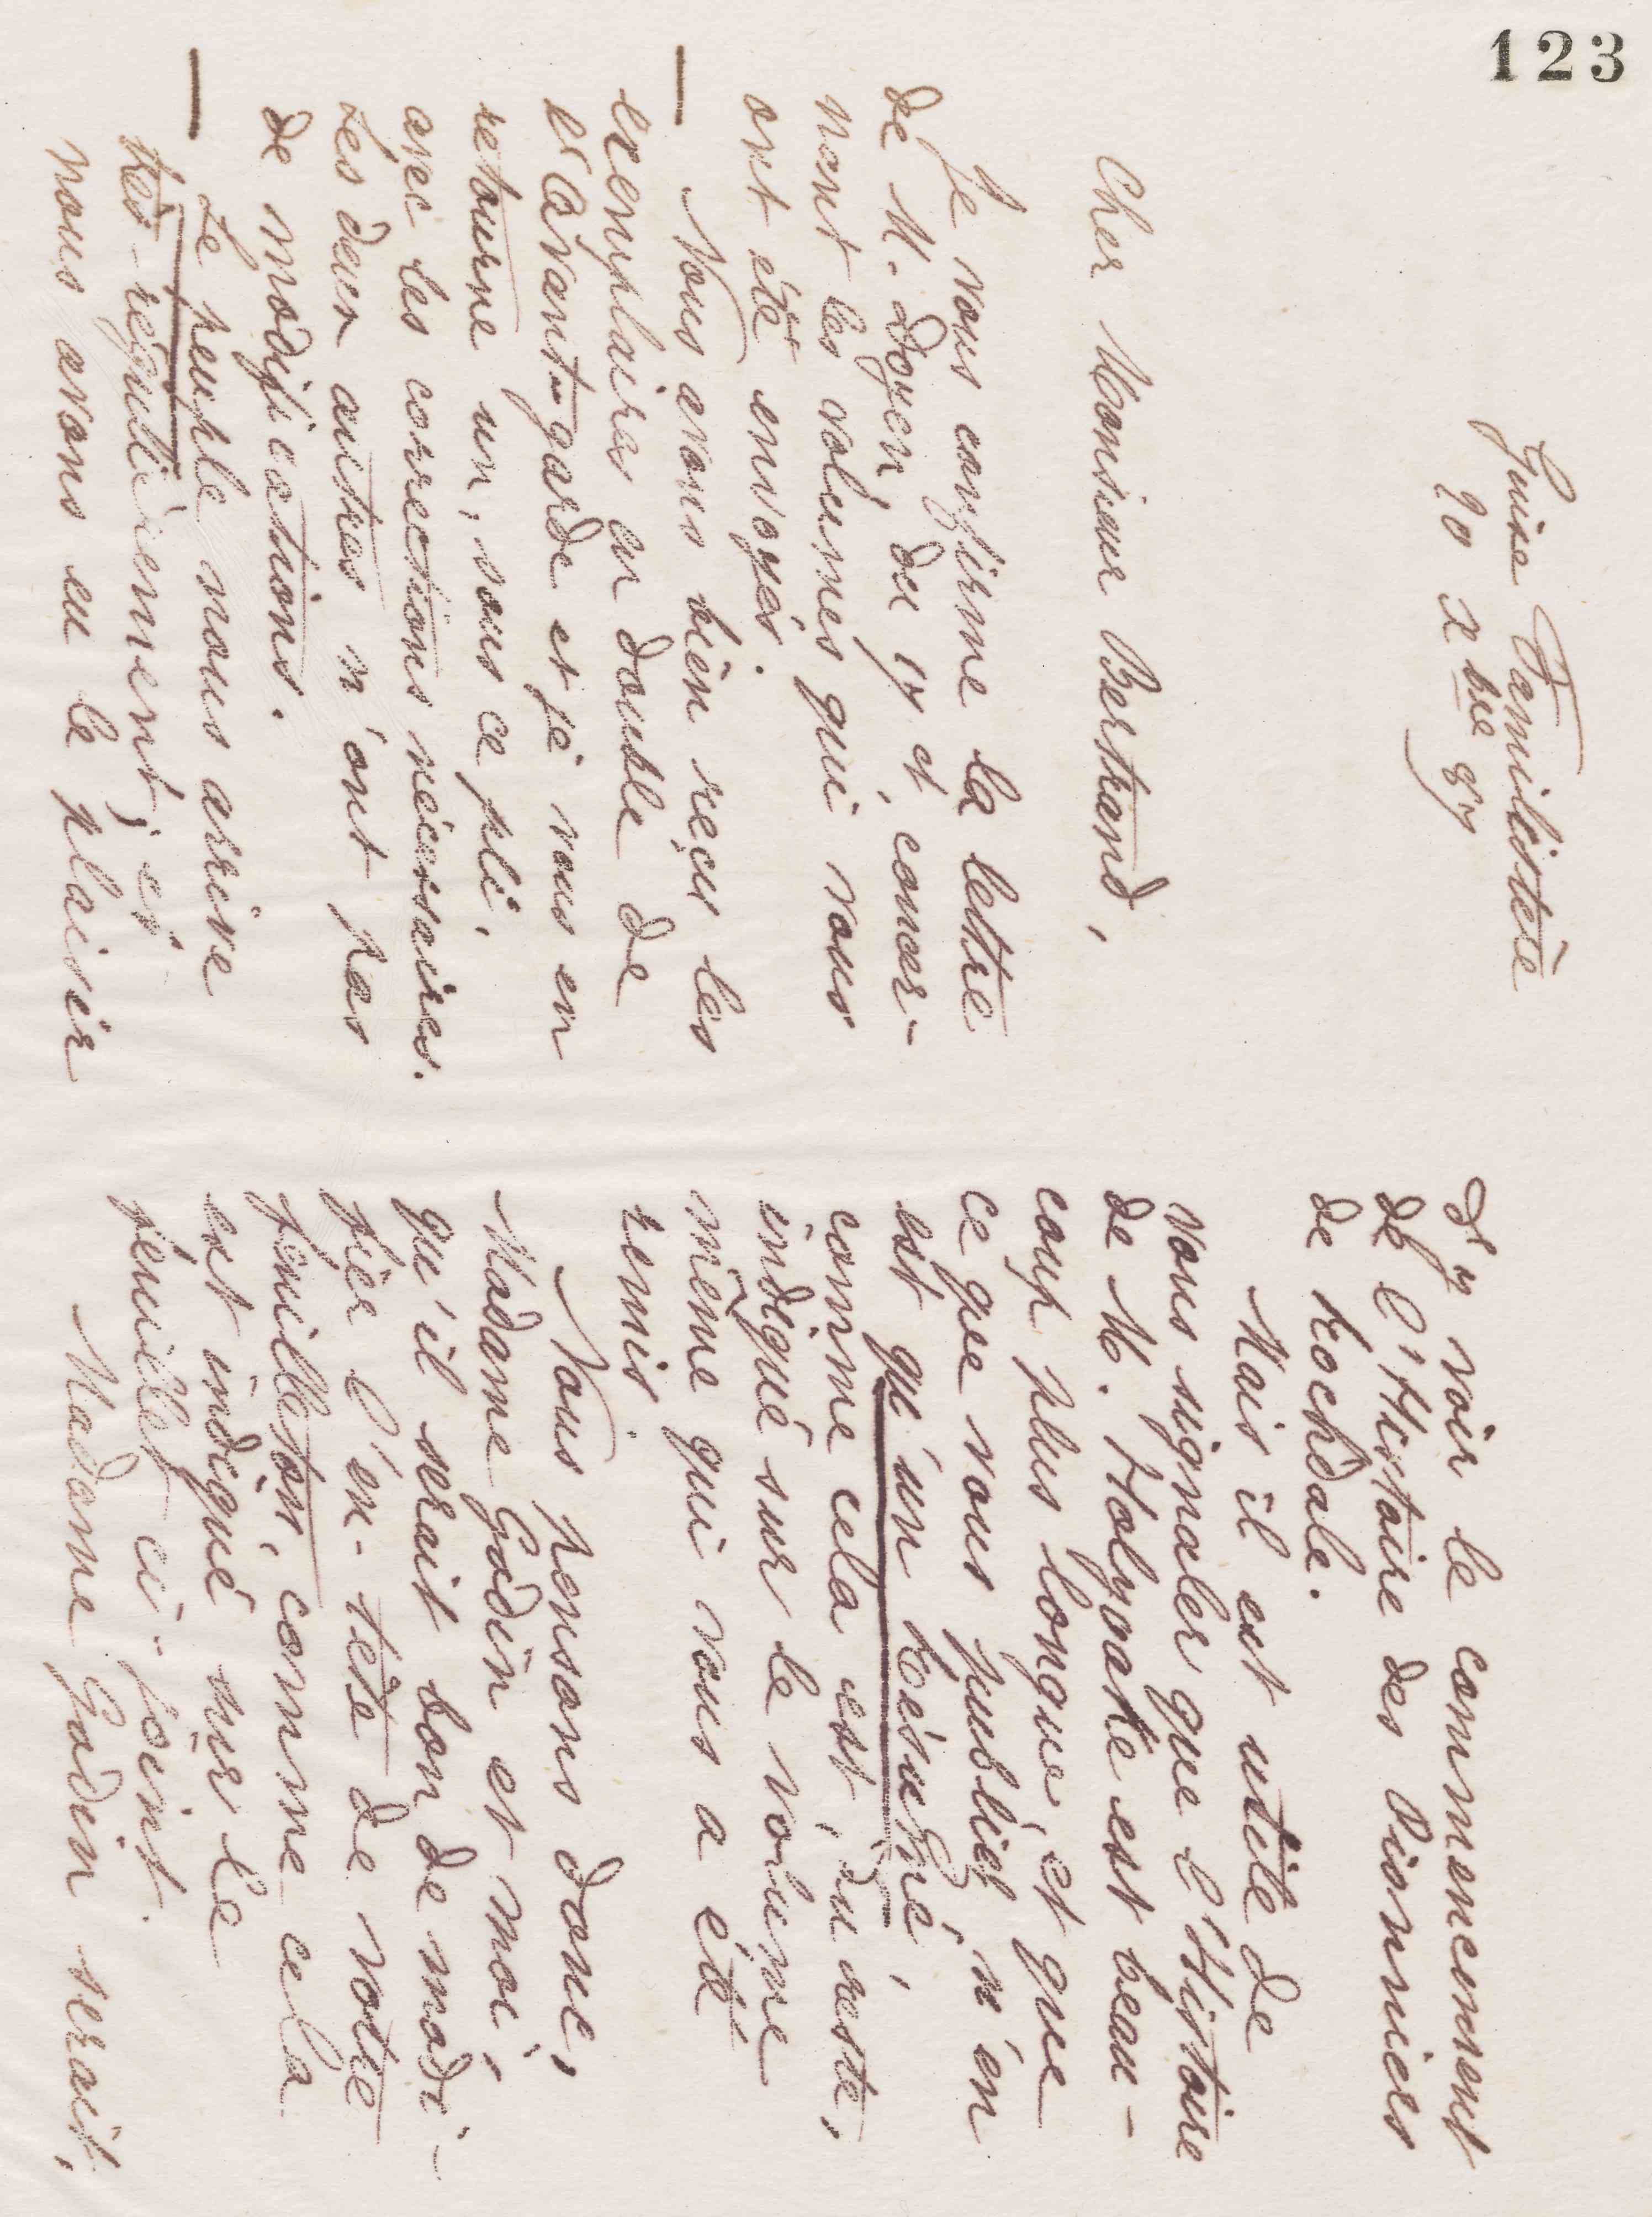 123
Guise Familistère
20 Xbre 87
Cher Monsieur Bertrand,
Je vous confirme la lettre
de M. Doyen du 17 ct, concer-
nant les volumes qui vous
ont été envoyés.
Nous avons bien reçu les
exemplaires en double de
l'Avant-garde et je vous en
retourne un, sous ce pli,
avec les corrections nécessaires.
Les deux autres n'ont pas
de modifications.
Le peuple nous arrive
très-régulièrement, et
nous avons eu le plaisir
d'y voir le commencement
de l'Histoire des Pionniers
de Rochdale.
Mais il est utile de
vous signaler que l'Histoire
de M. Holyoake est beau-
coup plus longue, et que
ce que vous publiez n'en
est qu'un Résumé,
comme cela est, du reste,
indiqué sur le volume
même qui vous a été
remis.
Nous pensons donc,
Madame Godin et moi,
qu'il serait bon de modi-
fier l'en-tête de votre
feuilleton, comme cela
est indiqué sur le
feuillet ci-joint.
Madame Godin serait,